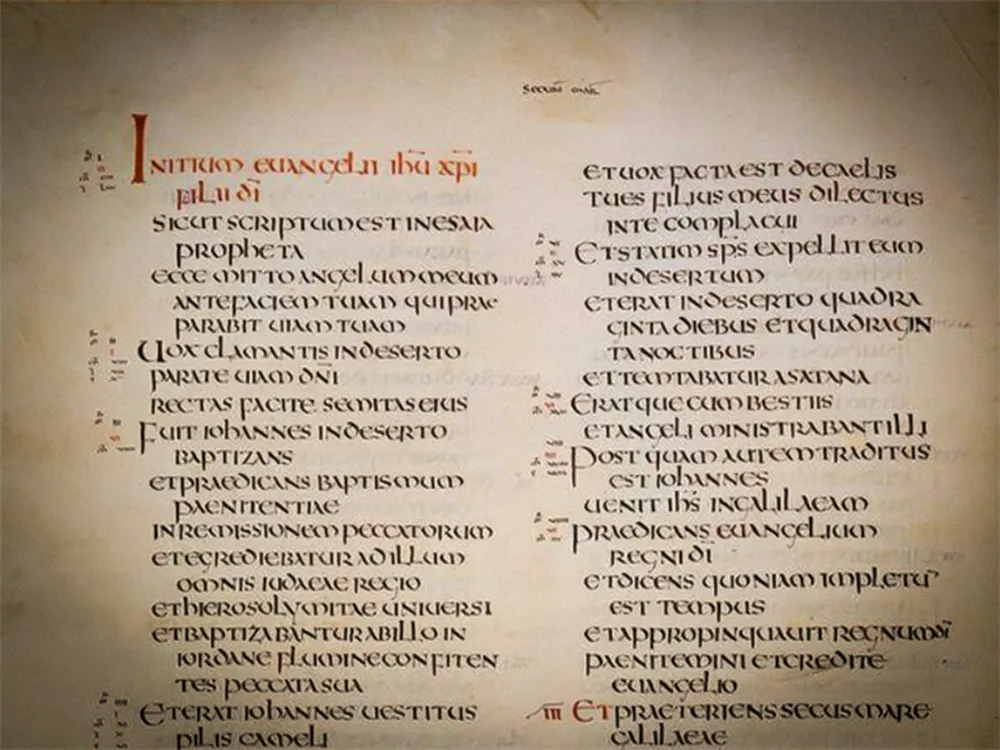 SECUM MAR
INITIUM EUANGELII IHU XPI
FILII DI
SICUT SCRIPTUM EST IN ESAIA
PROPHETA
ECCE MITTO ANGELUM MEUM
ANTE FACIEM TUAM QUI PRAE
PARABIT UIAM TUAM
UOX CLAMANTIS IN DESERTO
PARATE UIAM DNI
RECTAS FACITE SEMITAS EIUS
FUIT IOHANNES IN DESERTO
BAPTIZANS
ET PRAEDICANS BAPTISMUM
PAENITENTIAE
IN REMISSIONEM PECCATORUM
ET EGREDIEBATUR AD ILLUM
OMNIS IUDAEAE REGIO
ET HIEROSOLYMITAE UNIUERSI
ET BAPTIZABANTUR AB ILLO IN
IORDANE FLUMINE CONFITEN
TES PECCATA SUA
ET ERAT IOHANNES UESTITUS
PILIS CAMELI
ET UOX FACTA EST DE CAELIS
TU ES FILIUS MEUS DILECTUS
IN TE COMPLACUI
ET STATIM SPS EXPELLIT EUM
IN DESERTUM
ET ERAT IN DESERTO QUADRA
GINTA DIEBUS ET QUADRAGIN
TA NOCTIBUS
ET TEMTABATUR A SATANA
ERATQUE CUM BESTIIS
ET ANGELI MINISTRABANT ILLI
POSTQUAM AUTEM TRADITUS
EST IOHANNES
UENIT IHS IN GALILAEAM
PRAEDICANS EUANGELIUM
REGNI DI
ET DICENS QUONIAM IMPLETU
EST TEMPUS
ET APPROPINQUAUIT REGNUM DI
PAENITEMINI ET CREDITE
EUANGELIO
III ET PRAETERIENS SECUS MARE
GALILAEAE